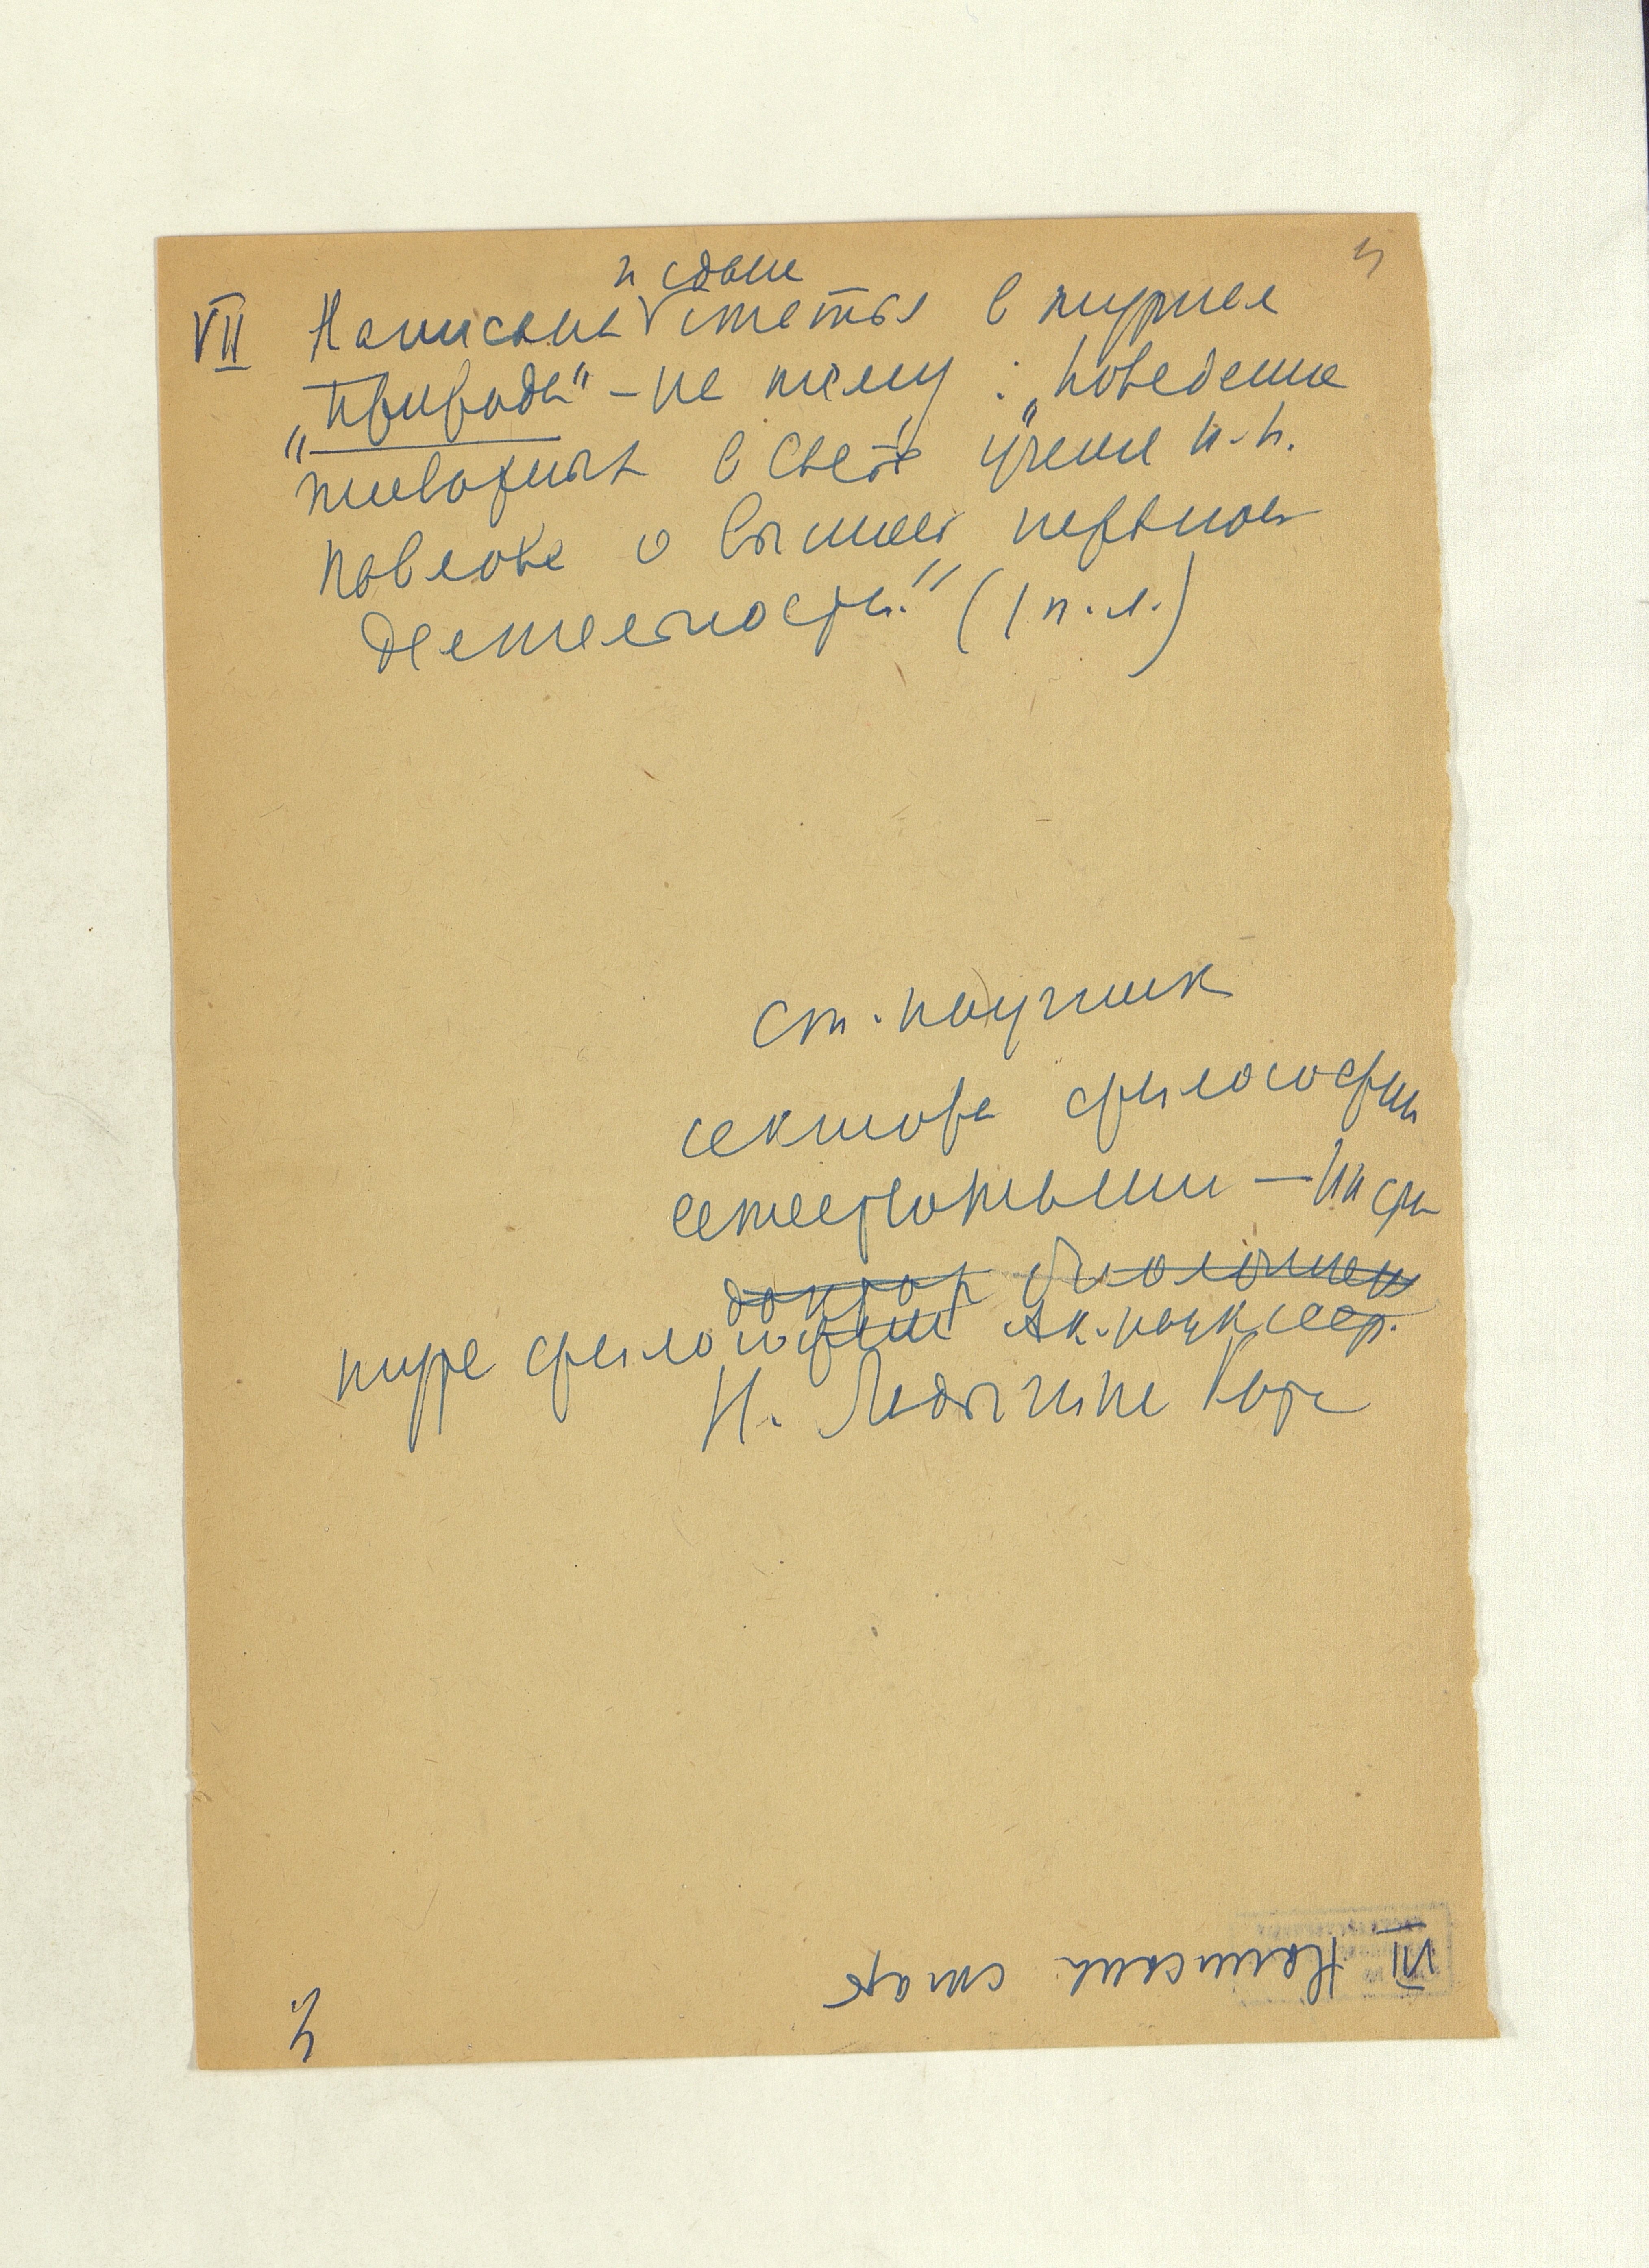 и сдана
VII Написана статья в журнал
"Природа" – на тему: "Поведение
животных в свете учения И. П.
Павлова о высшей нервной
деятельности." (1 п. л.)
Ст. научник
сектора философии
естествознания – Ин сти
доктор биологических
туте философии Ак. наук СССР.
Н. Ладыгина Котс
VII Написана статья
4